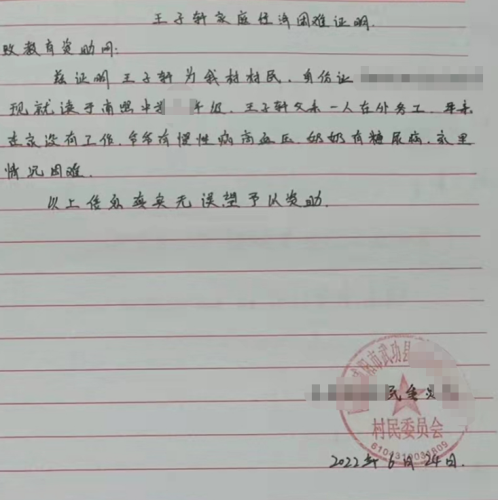 王子轩家庭经济困难证明
致教育资助网:
兹证明 王子轩 为我村村民,身份证
现就读于 年级,王子轩父亲一人在外务工,
在家没有工作,爷爷有慢性病高血压,奶奶有糖尿病,家里
情况困难.
以上信息真实无误望予以资助.
市武功县
民委员
村民委员会
2022年6月24日.